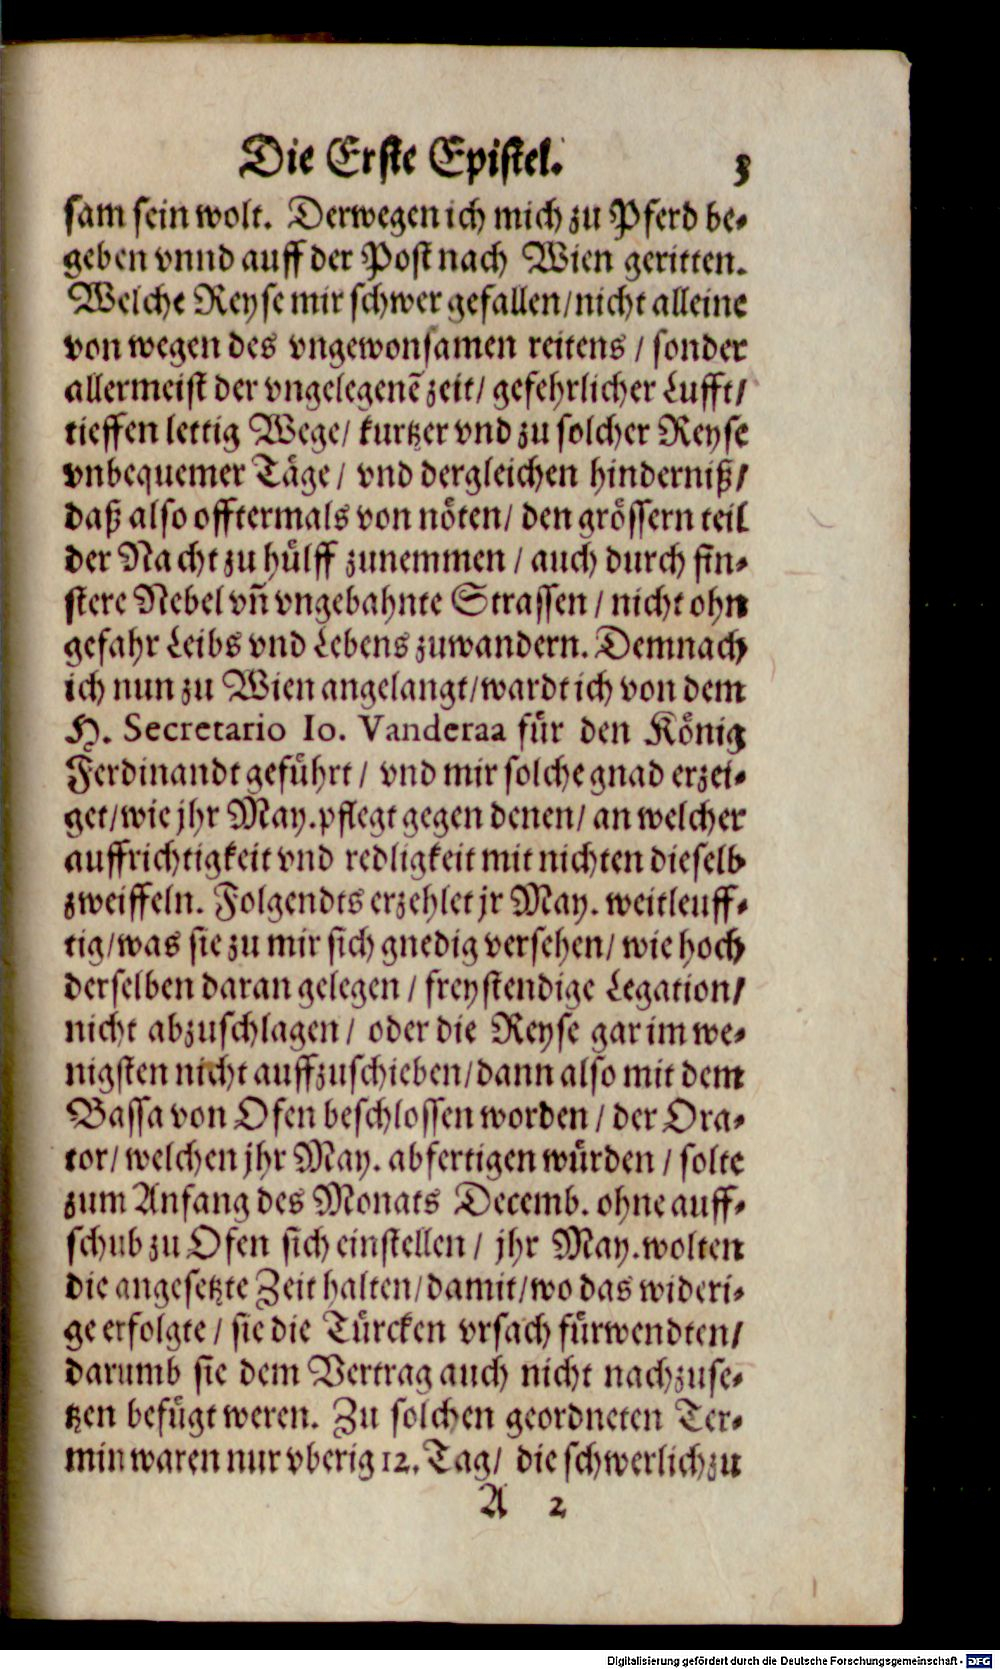 Die Erste Epistel. 3
sam sein wolt. Derwegen ich mich zu Pferd be-
geben vnnd auff der Post nach Wien geritten.
Welche Reyse mir schwer gefallen/nicht alleine
von wegen des vngewonsamen reitens / sonder
allermeist der vngelegenē zeit/ gefehrlicher Lufft/
tieffen lettig Wege/ kurtzer vnd zu solcher Reyse
vnbequemer Täge / vnd dergleichen hinderniß/
daß also offtermals von nöten/ den grössern teil
der Nacht zu hülff zunemmen / auch durch fin-
stere Nebel vn̄ vngebahnte Strassen / nicht ohn
gefahr Leibs vnd Lebens zuwandern. Demnach
ich nun zu Wien angelangt/wardt ich von dem
H. Secretario Io. Vanderaa für den König
Ferdinandt geführt / vnd mir solche gnad erzei-
get/wie jhr May. pflegt gegen denen/ an welcher
auffrichtigkeit vnd redligkeit mit nichten dieselb
zweiffeln. Folgendts erzehlet jr May. weitleuff-
tig/was sie zu mir sich gnedig versehen/ wie hoch
derselben daran gelegen / freystendige Legation/
nicht abzuschlagen / oder die Reyse gar im we-
nigsten nicht auffzuschieben/dann also mit dem
Bassa von Ofen beschlossen worden / der Ora-
tor/ welchen jhr May. abfertigen würden / solte
zum Anfang des Monats Decemb. ohne auff-
schub zu Ofen sich einstellen / jhr May. wolten
die angesetzte Zeit halten/damit/wo das wideri-
ge erfolgte / sie die Türcken vrsach fürwendten/
darumb sie dem Vertrag auch nicht nachzuse-
tzen befügt weren. Zu solchen geordneten Ter-
min waren nur vberig 12. Tag/ die schwerlich zu
A 2
Digitalisierung gefördert durch die Deutsche Forschungsgemeinschaft - DFG